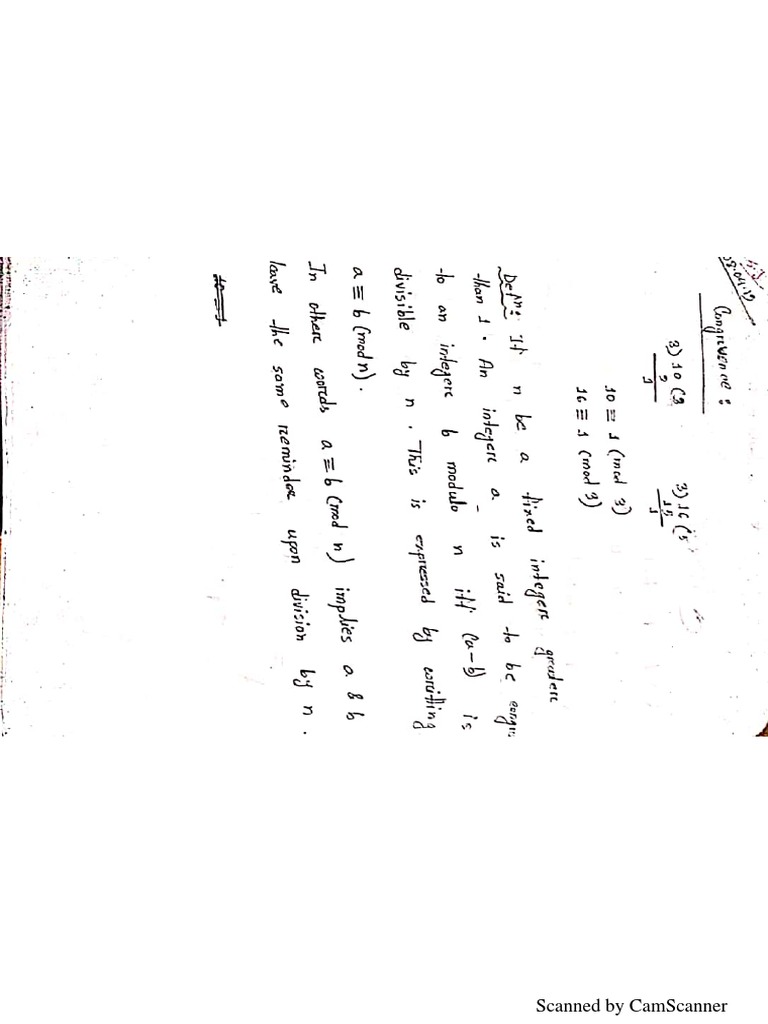 18.04.19
Congruence :
3) 10 (3
9
1
3) 16 (5
15
1
10 ≡ 1 (mod 3)
16 ≡ 1 (mod 3)
Defn: If n be a fixed integere greatere
than 1. An integere a is said to be congru
to an integere b modulo n iff (a-b) is
divisible by n. This is expressed by writting
a ≡ b (mod n).
In othere words a ≡ b (mod n) implies a & b
leave the same remindre upon division by n.
Scanned by CamScanner